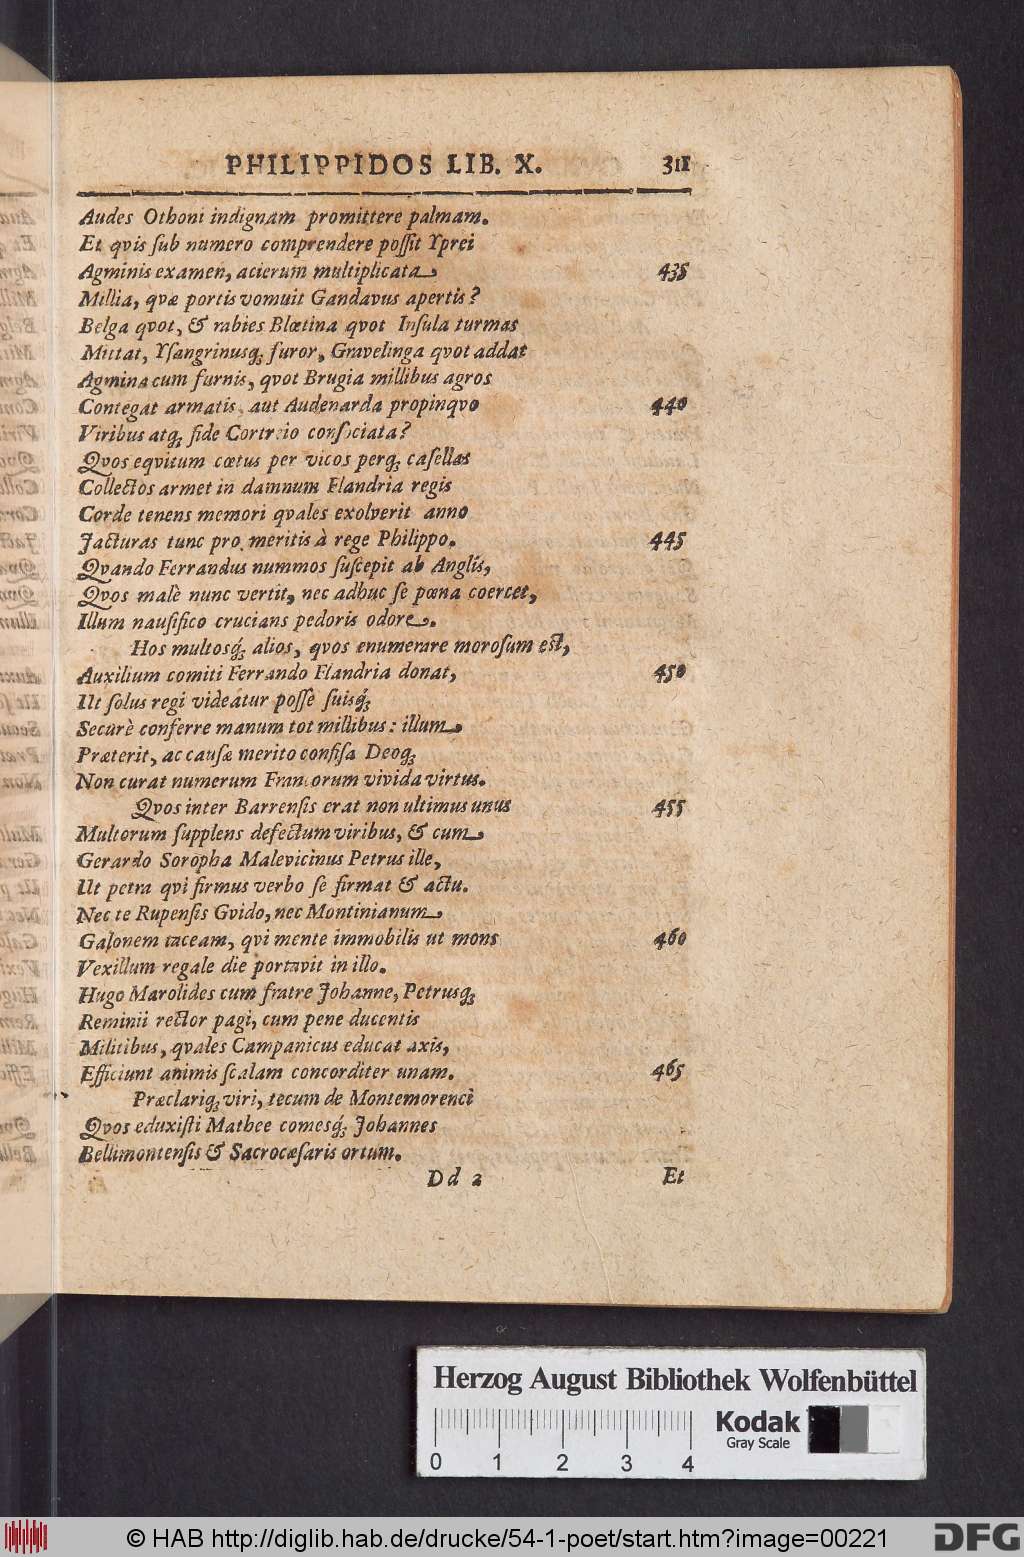 PHILIPPIDOS LIB. X. 311
Audes Othoni indignam promittere palmam.
Et qvis ſub numero comprendere poſſit Yprei
Agminis examen, acierum multiplicata 435
Millia, qvæ portis vomuit Gandavus apertis?
Belga qvot, & rabies Blœtina qvot Inſula turmas
Mittat, Yſangrinusq́; furor, Gravelinga qvot addat
Agmina cum furnis, qvot Brugia millibus agros
Contegat armatis, aut Audenarda propinqvo 440
Viribus atq; fide Cortreio conſociata?
Qvos eqvitum cœtus per vicos perq; caſellas
Collectos armet in damnum Flandria regis
Corde tenens memori qvales exolverit anno
Jacturas tunc pro meritis à rege Philippo. 445
Qvando Ferrandus nummos ſuſcepit ab Anglis,
Qvos malè nunc vertit, nec adhuc ſe pœna coercet,
Illum nauſifico crucians pedoris odore.
Hos multosq́; alios, qvos enumerare moroſum eſt,
Auxilium comiti Ferrando Flandria donat, 450
Ut ſolus regi videatur poſſe ſuisq́;
Securè conferre manum tot millibus: illum
Præterit, ac cauſæ merito confiſa Deoq;
Non curat numerum Francorum vivida virtus.
Qvos inter Barrenſis erat non ultimus unus 455
Multorum ſupplens defectum viribus, & cum
Gerardo Soropha Malevicinus Petrus ille,
Ut petra qvi firmus verbo ſe firmat & actu.
Nec te Rupenſis Gvido, nec Montinianum
Galonem taceam, qvi mente immobilis ut mons 460
Vexillum regale die portavit in illo.
Hugo Marolides cum fratre Johanne, Petrusq;
Reminii rector pagi, cum pene ducentis
Militibus, qvales Campanicus educat axis,
Efficiunt animis ſcalam concorditer unam. 465
Præclariq; viri, tecum de Montemorenci
Qvos eduxiſti Mathee comesq́; Johannes
Bellimontenſis & Sacrocæſaris ortum.
Dd 2 Et
Herzog August Bibliothek Wolfenbüttel
Kodak
Gray Scale
0 1 2 3 4
© HAB http://diglib.hab.de/drucke/54-1-poet/start.htm?image=00221
DFG